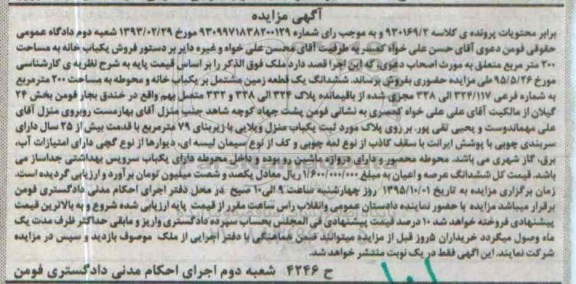 آگهی مزایده
برابر محتویات پرونده ی کلاسه ۹۳۰۱۶۹/۲ و به موجب رای شماره ۹۳۰۹۹۷۱۸۳۸۲۰۰۱۲۹ مورخ ۱۳۹۳/۰۲/۲۹ شعبه دوم دادگاه عمومی
حقوقی فومن دعوی آقای حسن علی خواه گسکر به طرفیت آقای محسن علی خواه و غیره دایر بر دستور فروش یکباب خانه به مساحت
۲۰۰ متر مربع متعلق به مورث اصحاب دعوی، که این اجرا قصد دارد ملک فوق الذکر را بر اساس قیمت پایه به شرح نظریه ی کارشناسی
مورخ ۹۵/۵/۲۶ طی مزایده حضوری بفروش برساند. ششدانگ یک قطعه زمین مشتمل بر یکباب خانه و محوطه به مساحت ۲۰۰ مترمربع
به شماره فرعی ۳۲۴/۱۱۷ الی ۳۲۸ مجزی شده از باقیمانده پلاک ۳۲۴ الی ۳۲۸ و ۳۳۲ متصل بهم واقع در خندق بجار فومن بخش ۲۴
گیلان از مالکیت آقای علی علی خواه به نشانی فومن پشت جهاد کوچه شاهد جنب منزل آقای بهارمست روبروی منزل آقای
علی مهماندوست و یحیی تقی پور. بر روی پلاک مورد ثبت یکباب منزل ویلایی با زیربنای ۷۹ مترمربع با قدمت بیش از ۲۵ سال دارای
سربندی چوبی با پوشش ایرانیت با سقف کاذب از نوع لمبه چوبی و کف از نوع سیمان لیسه ای، دیوارها از نوع گچی دارای امتیازات آب،
برق، گاز شهری می باشد. محوطه محصور و دارای دروازه ماشین رو بوده و داخل محوطه دارای یکباب سرویس بهداشتی جداساز می
باشد. قیمت کل ششدانگ عرصه و اعیان به مبلغ ۱/۶۰۰/۰۰۰/۰۰۰ ریال معادل یکصد و شصت میلیون تومان برآورد و ارزیابی گردیده است.
زمان برگزاری مزایده به تاریخ ۱۳۹۵/۱۰/۰۱ روز چهارشنبه ساعت ۹ الی ۱۰ صبح در محل دفتر اجرای احکام مدنی دادگستری فومن
برقرار میباشد مزایده با حضور نماینده دادستان عمومی وانقلاب راس ساعت مقرر از قیمت پایه ارزیابی شده شروع و به بالاترین قیمت
پیشنهادی فروخته خواهد شد ۱۰ درصد قیمت پیشنهادی فی المجلس بحساب سپرده دادگستری واریز و مابقی حداکثر ظرف مدت یک
ماه وصول میگردد خریداران ۵روز قبل از مزایده میتوانند ضمن هماهنگی با دفتر اجرایی از ملک موصوف بازدید و سپس در مزایده
شرکت نمایند. این آگهی فقط در یک نوبت منتشر خواهد شد.
ح ۴۲۴۶ شعبه دوم اجرای احکام مدنی دادگستری فومن